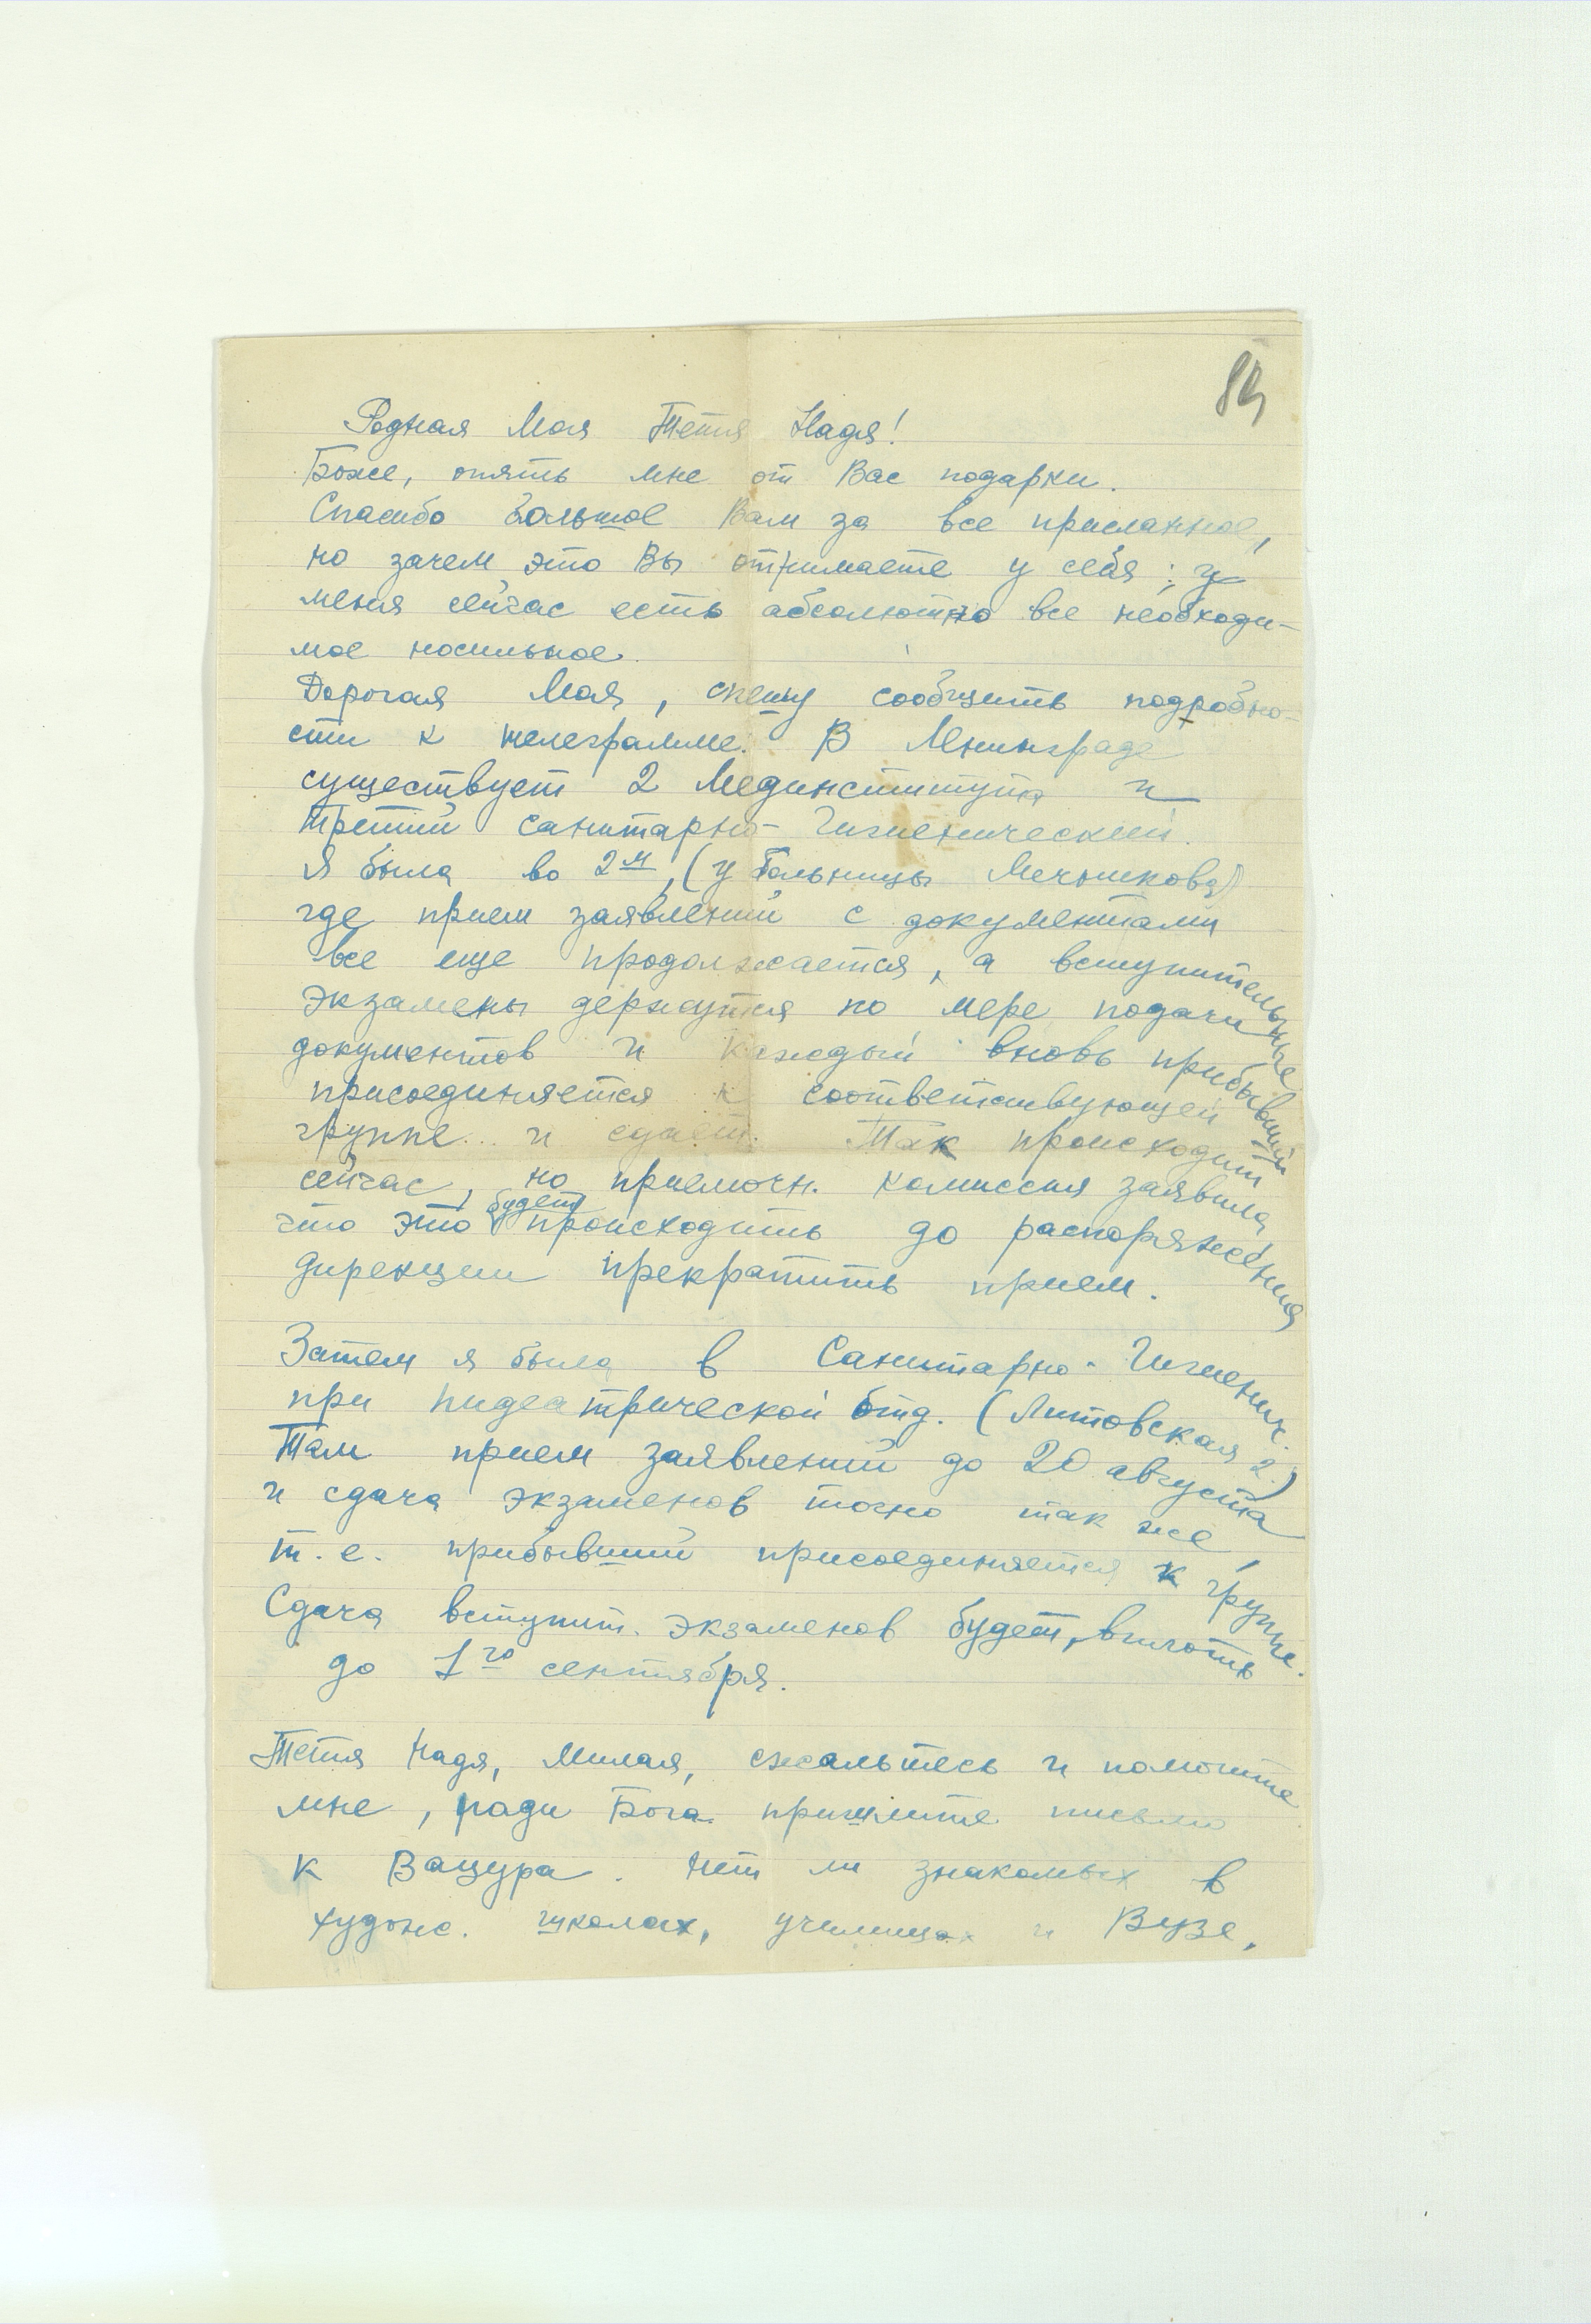 89
Родная Моя Тетя Надя!
Боже, опять мне от Вас подарки.
Спасибо большое Вам за все присланное,
но зачем это Вы отнимаете у себя: у
меня сейчас есть абсолютно все необходи-
мое носильное.
Дорогая Моя, спешу сообщить подробно-
сти к телеграмме. В Ленинграде
существует 2 Мединститута и
третий санитарно-Гигиенический.
Я была во 2м, (у больницы Мечникова)
где прием заявлений с документами
все еще продолжается, а вступительные
экзамены держутся по мере подачи
документов и каждый вновь прибывший
присоединяется к соответствующей
группе.. и сдает. Так происходит
сейчас, но приемочн. комиссия заявила,
что это будет происходить до распоряжения
дирекции прекратить прием.
Затем я была в Санитарно-Гигиенич.
при пидеатрической отд. (Литовская 2.)
Там прием заявлений до 20 августа
и сдача экзаменов точно так же,
т.е. прибывший присоединяется к группе.
Сдача вступит. экзаменов будет, вплоть
до 1го сентября.
Тетя Надя, Милая, сжальтесь и помогите
мне, ради Бога пришлите письмо
к Вацура. Нет ли знакомых в
худож. школах, училищах и Вузе,